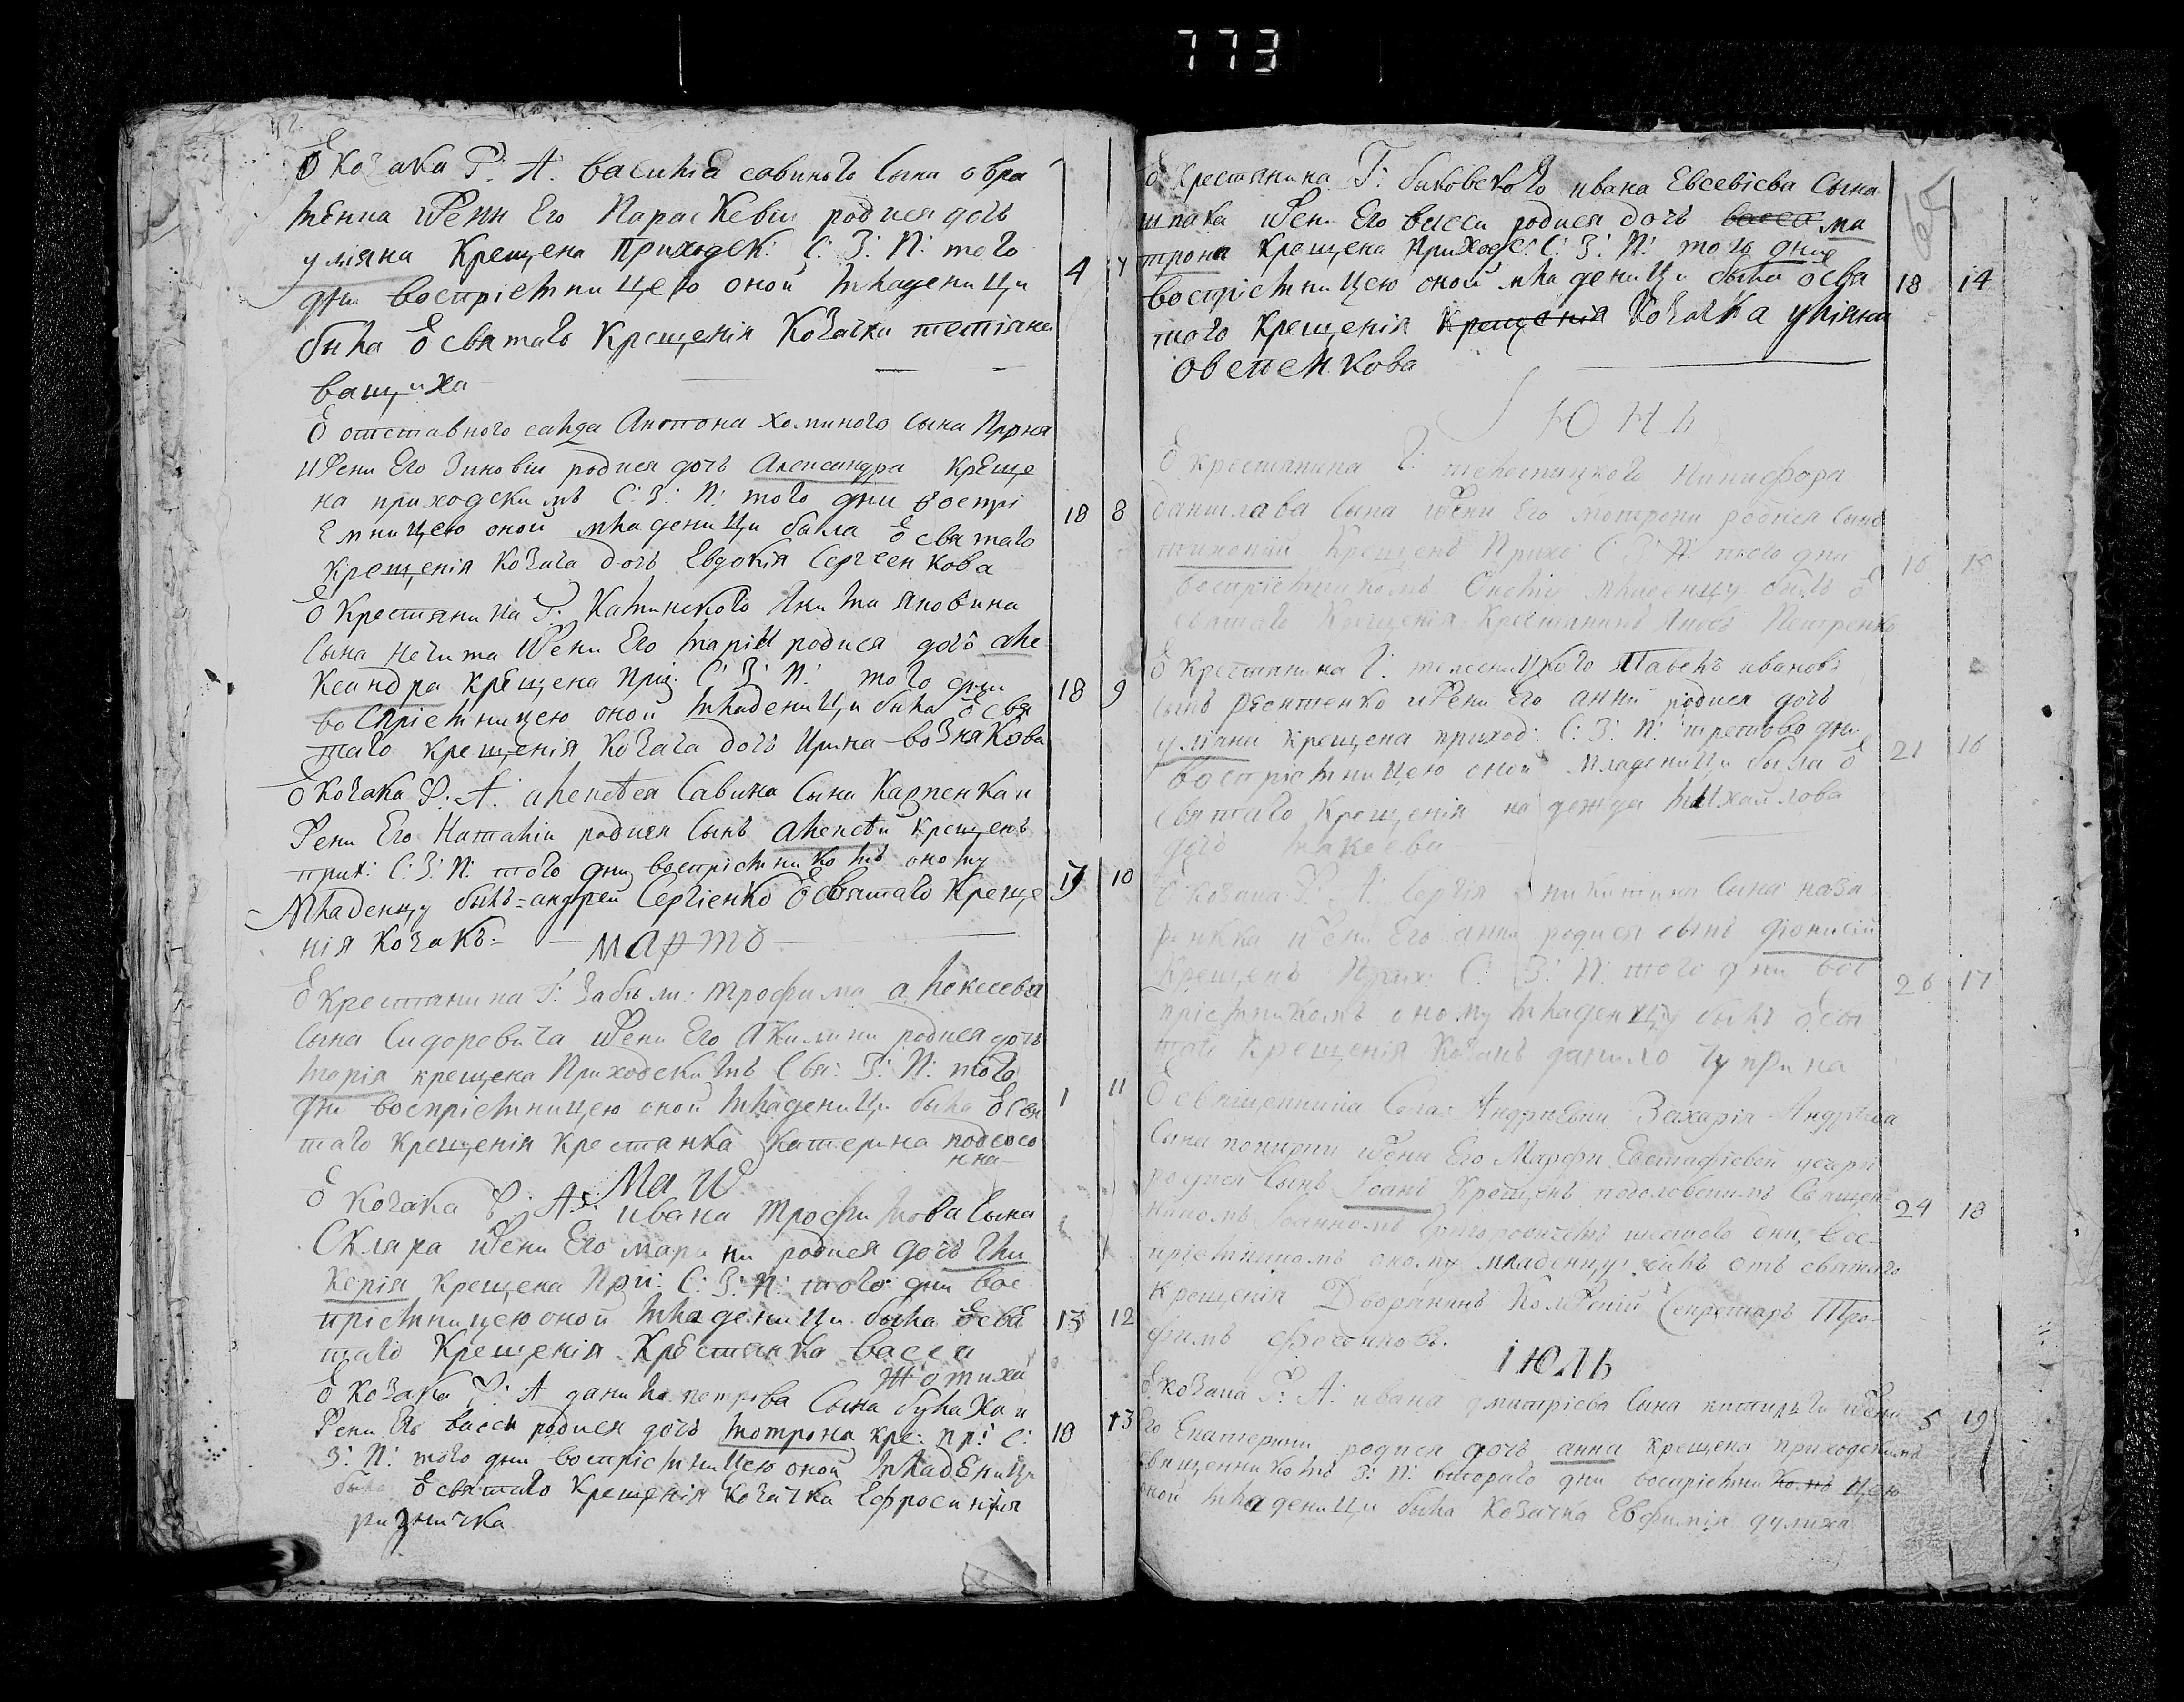 773
Ѿ козака Р: А: василія савиного сына овра
менка жени Его Параскевіи родися дочъ
уляна крещена приходск: С: З: П: того
дни воспріемницею оной младеници 4 7
была Ѿ святаго крещенія козачка тетіяна
ващиха
Ѿ отставного салда Антона хоминого сына
жени Его Зиновіи родися дочъ Александра креще
на приходскимъ С: З: П: того дни воспрі
Емницею оной младеници была Ѿ святаго 18 8
крещенія козача дочъ Евдокія Сергеенкова
Ѿ крестянина Г: Яковина
сына жени Его маріи родися дочъ але
ксандра крещена при: С: З: П: того дни 18 9
воспріемницею оной младеници была Ѿ свя
таго крещенія козача дочъ Ирина вознякова
Ѿ козака Р: А: алексѣя Савина сына Карпенка и
жени Его Наталіи родися сынъ алексѣй крещенъ
прих: С: З: П: того дни воспріемникомъ оному 10
младенцу былъ андрей Сергіенко Ѿ святаго креще
нія козакъ
мартъ
Ѿ крестянина Г: Забѣли: трофима алексеева
сына Сидоревича жени Его Акилини родися дочъ
марія крещена Приходскимъ Свя: З: П: того
дни воспріемницею оной младеници была Ѿ свя 1 11
таго крещенія крестянка катерина подсосо
нна
Маи
Ѿ козака Р: А: ивана трофимова сына
Скляра жени Его марини родися дочъ гли
керія крещена При: С: З: П: того дни вос
пріемницею оной младеници была Ѿ свя 13 12
таго крещенія крестянка васса
Жотиха
Ѿ козака Р: А данила петрова сына булаха и
жени Его васси родися дочъ мотрона кре: при: С: 18 13
З: П: того дни воспріемницею оной младеници
была Ѿ святаго крещенія козачка Ефросинія
ризничка
Ѿ крестянина Г: биковского ивана Евсевіева сына
шпака жени Его васси родися дочъ васса ма
трона крещена приход: С: З: П: того дни
воспріемницею оной младеници была Ѿ свя 18 14
таго крещенія крещенія козачка уліяна
овсенкова
Юнь
Ѿ крестянина Г: Никифора
данилава сына жени Его мотрени родися сынъ
крещенъ Прихо: С: З: П: того дни 16 15
воспріемникомъ Оному младенцу былъ Ѿ
святаго крещенія крестянинъ Яковъ Петренко
Ѿ крестянина Г: Павелъ ивановъ
сынъ жени Его анни родися дочъ
уляна крещена приход: С: З: П: третово дни 21 16
воспріемницею оной младеници была Ѿ
святаго крещенія надежда михайлова
дочъ макеева
Ѿ козака Р: А: Сергія никитина сына наза
ренкка жени Его анни родися сынъ діонисій
крещенъ Прих: С: З: П: того дни вос 26 17
пріемникомъ оному младенцу былъ Ѿ свя
таго крещенія козакъ данило чуприна
Ѿ священника села Андреевки Захарія Андреева
сына жени Его Марфи Евстафіевой дочери
родися сынъ Іоанъ крещенъ священ 24 18
никомъ Іоанномъ Григоровичемъ шестого дни, вос-
пріемникомъ оному младенцу былъ отъ святаго
крещенія Дворянинъ Колежскій Секретаръ Тро-
фимъ
іюль
Ѿ козака Р: А: ивана дмитріева сына жени 5 19
Его Екатерини родися дочъ анна крещена приходскимъ
священникомъ З: П: втораго дни воспріемникомъ цею
оной младеници была козачка Евфимія дулиха